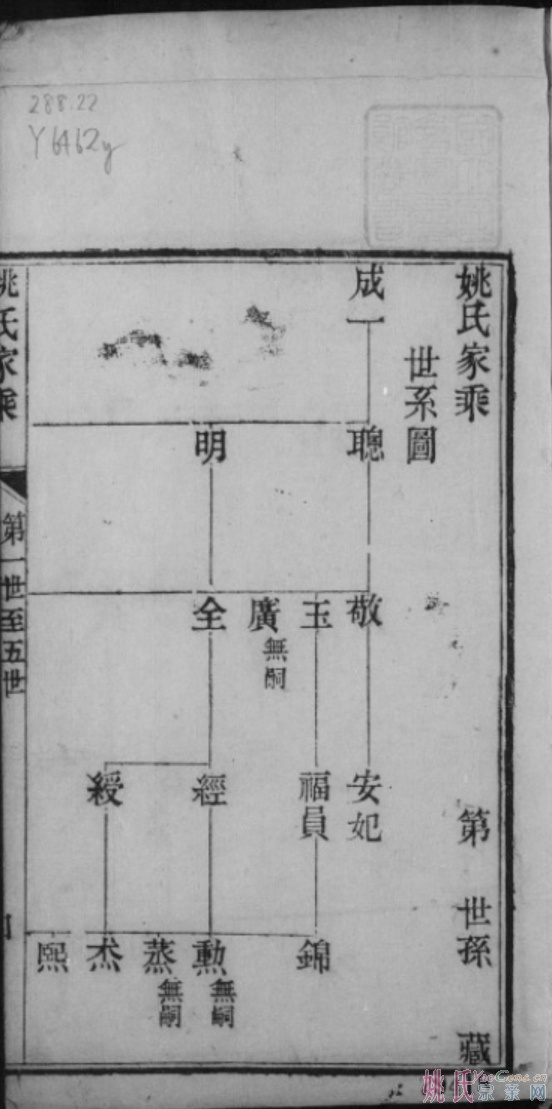 288.22
Y6462y
姚氏家乘
第 世孫 藏
世系圖
成一
聰 明
敬 玉 廣 無嗣 全
安妃 福員 經 綬
錦 勲 無嗣 蒸 無嗣 杰 熙
姚氏家乘
第一世至五世
姚氏宗亲网
YaoGens.cn